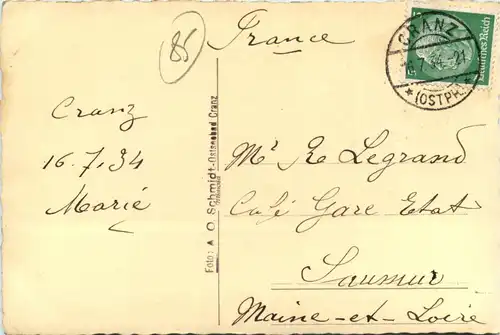 85
France
CRANZ
16.7.34.-21
* (OSTPR.)
Deutsches Reich
Cranz
16.7.34
Marié
Foto: A. O. Schmidt-Ostseebad Cranz
Mr R. Legrand
Café Gare Etat
Saumur
Maine-et-Loire